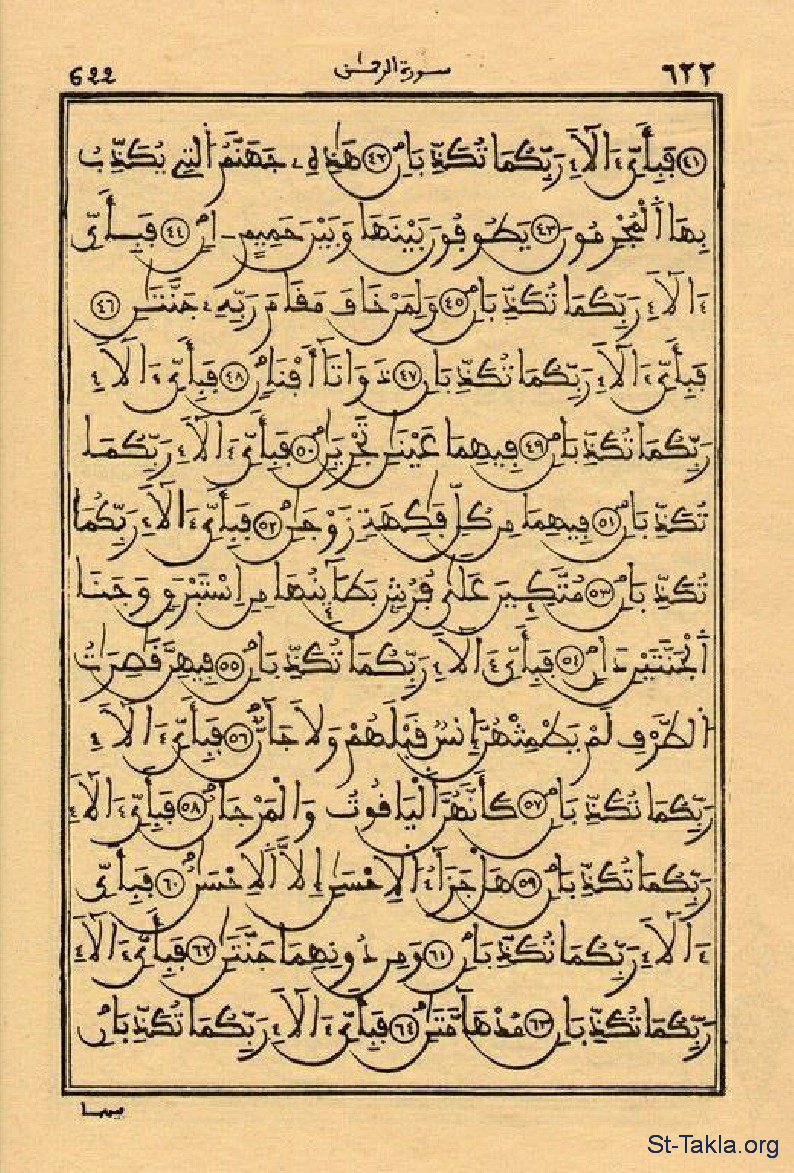 ٦٢٢ سورة الرحمن 622
٤١ فَبِأَيِّ ءَالَآءِ رَبِّكُمَا تُكَذِّبَانِ ٤٢ هَٰذِهِۦ جَهَنَّمُ اُلتِي يُكَذِّبُ
بِهَا اَلْمُجْرِمُونَ ٤٣ يَطُوفُونَ بَيْنَهَا وَبَيْنَ حَمِيمٍ ـ انٍ ٤٤ فَبِأَيِّ
ءَالَآءِ رَبِّكُمَا تُكَذِّبَانِ ٤٥ وَلِمَنْ خَافَ مَقَامَ رَبِّهِۦ جَنَّتَٰنِ ٤٦
فَبِأَيِّ ءَالَآءِ رَبِّكُمَا تُكَذِّبَانِ ٤٧ ذَوَاتَآ أَفْنَانٍ ٤٨ فَبِأَيِّ ءَالَآءِ
رَبِّكُمَا تُكَذِّبَانِ ٤٩ فِيهِمَا عَيْنَٰنِ تَجْرِيَٰنِ ٥٠ فَبِأَيِّ ءَالَآءِ رَبِّكُمَا
تُكَذِّبَانِ ٥١ فِيهِمَا مِن كُلِّ فَٰكِهَةٍ زَوْجَٰنِ ٥٢ فَبِأَيِّ ءَالَآءِ رَبِّكُمَا
تُكَذِّبَانِ ٥٣ مُتَّكِـِٕينَ عَلَىٰ فُرُشٍ بَطَآئِنُهَا مِنِ اسْتَبْرَقٍ وَجَنَا
اَلْجَنَّتَيْنِ دَانٍ ٥٤ فَبِأَيِّ ءَالَآءِ رَبِّكُمَا تُكَذِّبَانِ ٥٥ فِيهِنَّ قَٰصِرَٰتُ
اُلطَّرْفِ لَمْ يَطْمِثْهُنَّ إِنسٌ قَبْلَهُمْ وَلَا جَآنٌّ ٥٦ فَبِأَيِّ ءَالَآءِ
رَبِّكُمَا تُكَذِّبَانِ ٥٧ كَأَنَّهُنَّ اَلْيَاقُوتُ وَالْمَرْجَانُ ٥٨ فَبِأَيِّ ءَالَآءِ
رَبِّكُمَا تُكَذِّبَانِ ٥٩ هَلْ جَزَآءُ اُلِاحْسَٰنِ إِلَّا اَلِاحْسَٰنُ ٦٠ فَبِأَيِّ
ءَالَآءِ رَبِّكُمَا تُكَذِّبَانِ ٦١ وَمِن دُونِهِمَا جَنَّتَٰنِ ٦٢ فَبِأَيِّ ءَالَآءِ
رَبِّكُمَا تُكَذِّبَانِ ٦٣ مُدْهَآمَّتَٰنِ ٦٤ فَبِأَيِّ ءَالَآءِ رَبِّكُمَا تُكَذِّبَانِ
فيهما
St-Takla.org